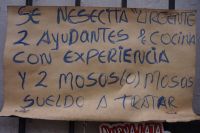 SE NESECITA URGENTE
2 AYUDANTES DE COCINA
CON EXPERIENCIA
Y 2 MOSOS(O) MOSAS
SUELDO A TRATAR